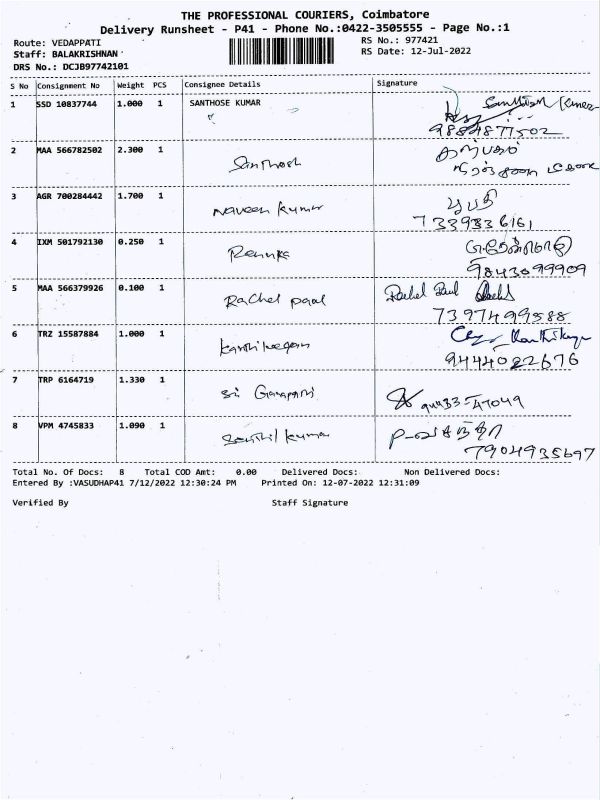 THE PROFESSIONAL COURIERS, Coimbatore
Delivery Runsheet - P41 - Phone No.:0422-3505555 - Page No.:1
Route: VEDAPPATI
RS No.: 977421
Staff: BALAKRISHNAN
RS Date: 12-Jul-2022
DRS No.: DCJB97742101
S No Consignment No Weight PCS Consignee Details Signature
1 SSD 10837744 1.000 1 SANTHOSE KUMAR
9884877502
2 MAA 566782502 2.300 1 Santhosh
3 AGR 700284442 1.700 1 Naveen kumar
7339336161
4 IXM 501792130 0.250 1 Renuka
9843099909
5 MAA 566379926 0.100 1 Rachel paul Rachel Paul
7397499588
6 TRZ 15587884 1.000 1 Karthikegan
9444022676
7 TRP 6164719 1.330 1 Sri Ganapathi
94433-47049
8 VPM 4745833 1.090 1 Senthil kumar
7904935697
Total No. Of Docs: 8 Total COD Amt: 0.00 Delivered Docs: Non Delivered Docs:
Entered By :VASUDHAP41 7/12/2022 12:30:24 PM Printed On: 12-07-2022 12:31:09
Verified By Staff Signature